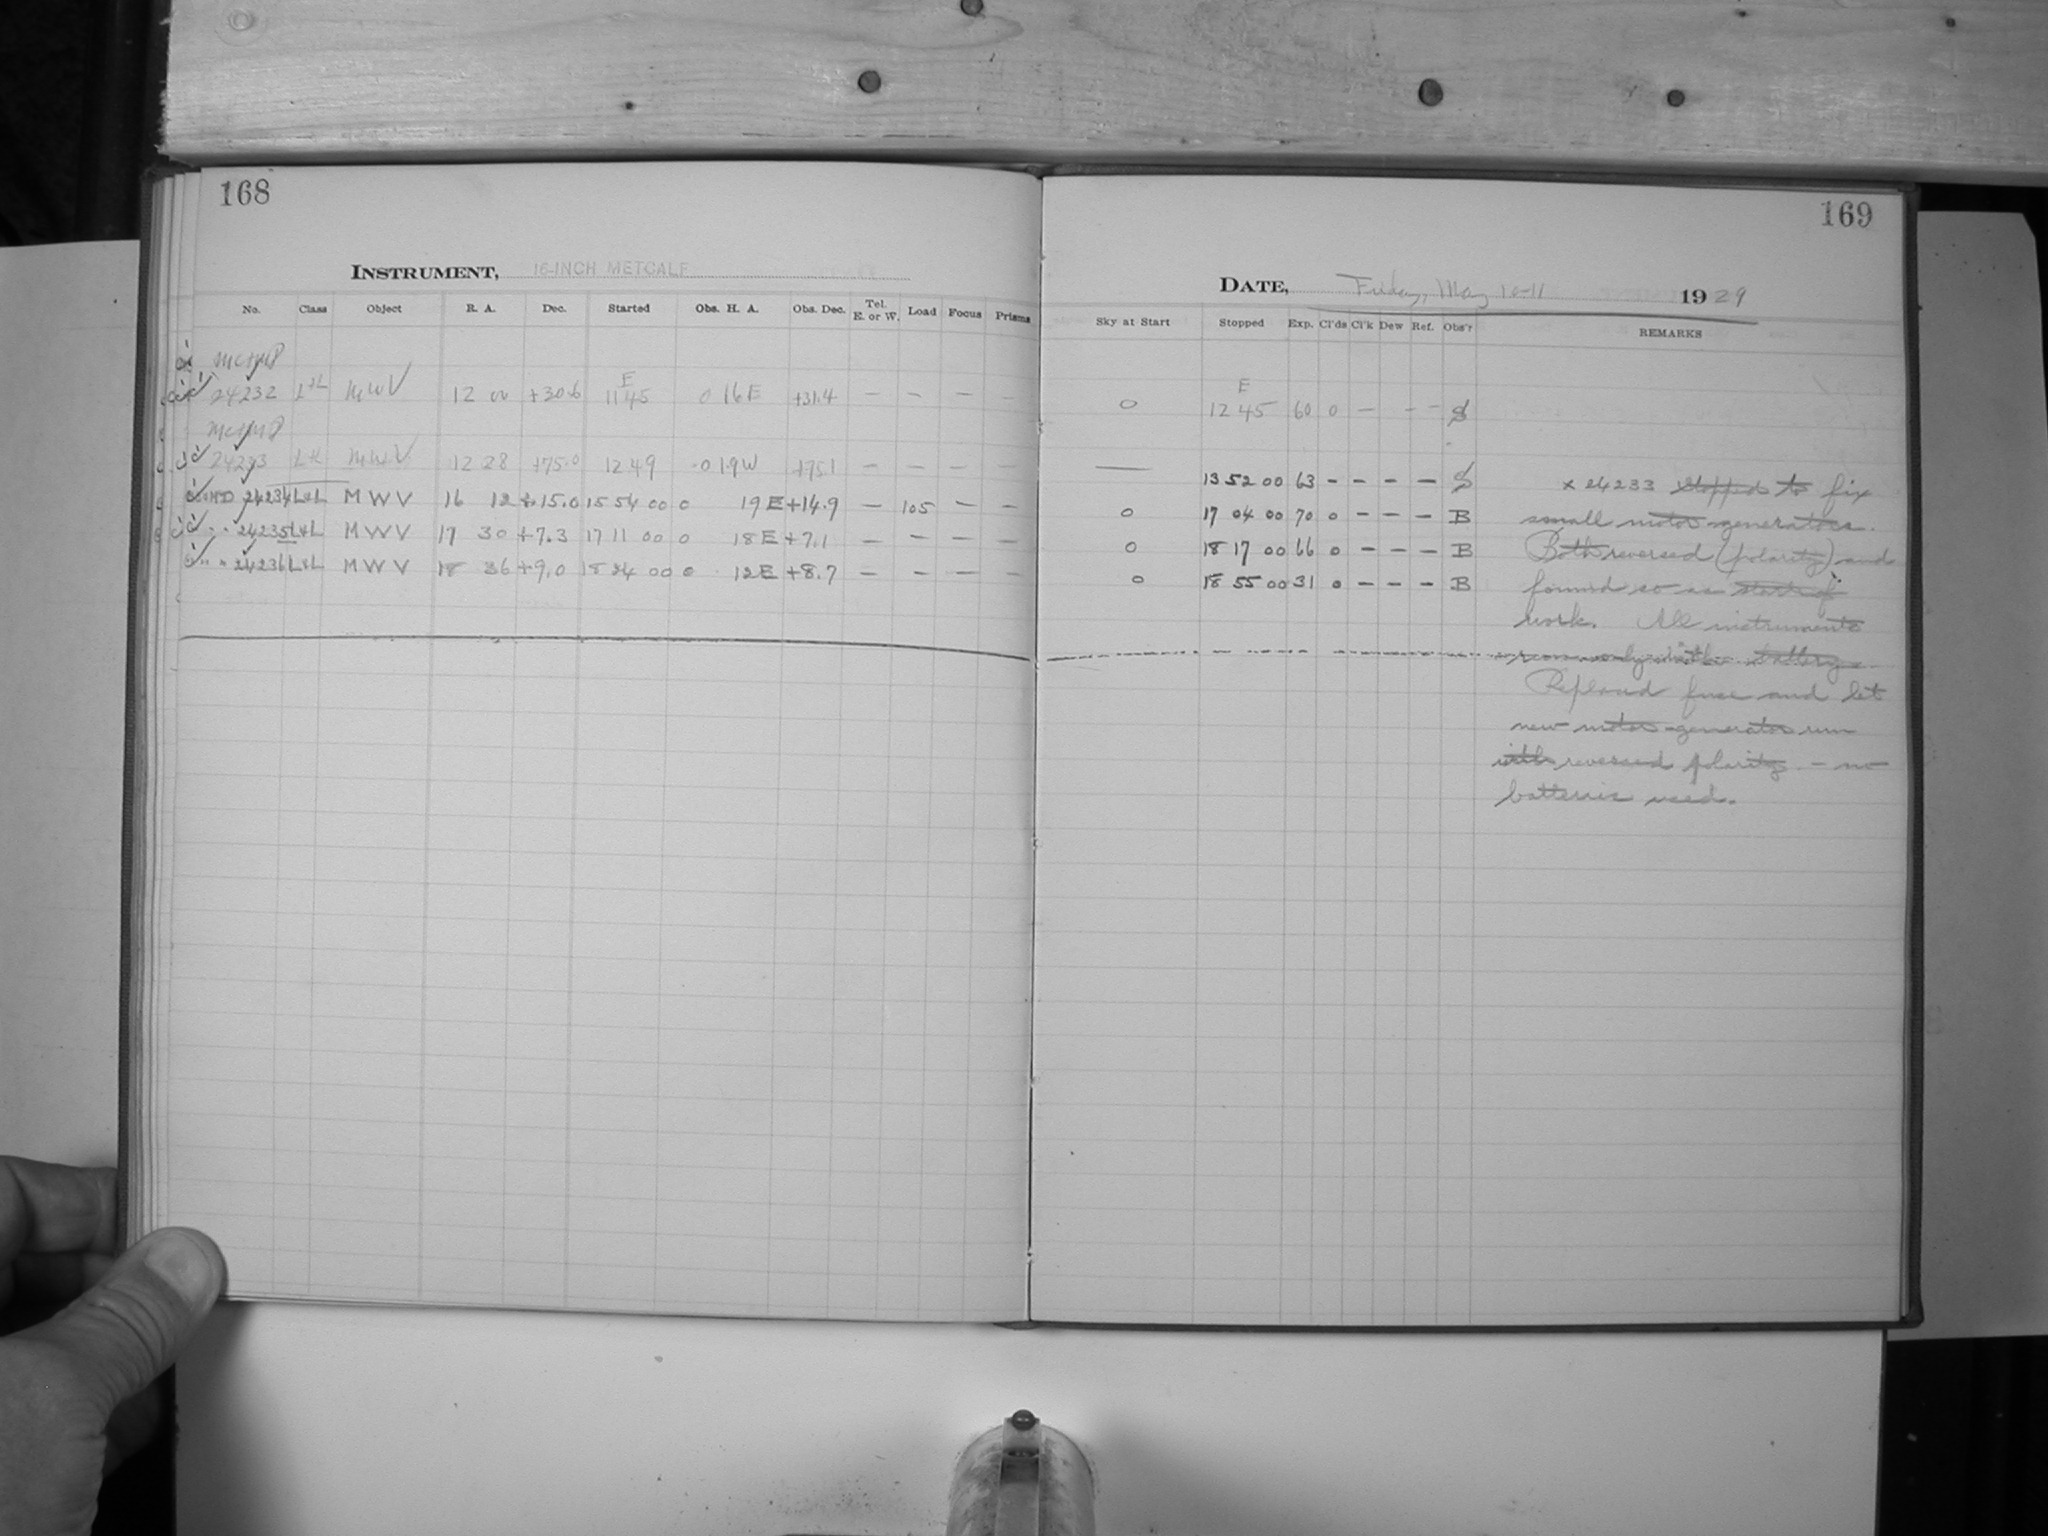 168
INSTRUMENT, 16-INCH METCALF
No. Class Object R. A. Dec. Started Obs. H. A. Obs. Dec. Tel. E. or W. Load Focus Prisms
24232 L+L MWV 12 00 +30.6 E 11 45 0 16 E +31.4 — — — —
24233 L+L MWV 12 28 +75.0 12 49 0 19 W +75.1 — — — —
24234 L+L MWV 16 12 +15.0 15 54 00 0 19 E +14.9 — 105 — —
24235 L+L MWV 17 30 +7.3 17 11 00 0 18 E +7.1 — — — —
24236 L+L MWV 18 36 +9.0 18 24 00 0 12 E +8.7 — — — —
169
DATE, Friday, May 10-11 1929
Sky at Start Stopped Exp. Cl'ds Cl'k Dew Ref. Obs'r REMARKS
0 E 12 45 60 0 — — —
— 13 52 00 63 — — — —
0 17 04 00 70 0 — — — B
0 18 17 00 66 0 — — — B
0 18 55 00 31 0 — — — B
x 24233 stopped to fix
small motor-generators.
Both reversed (polarity) and
found so as start of
work. All instruments
run only with battery.
Replaced fuse and let
new motor-generator run
with reversed polarity — no
batteries used.